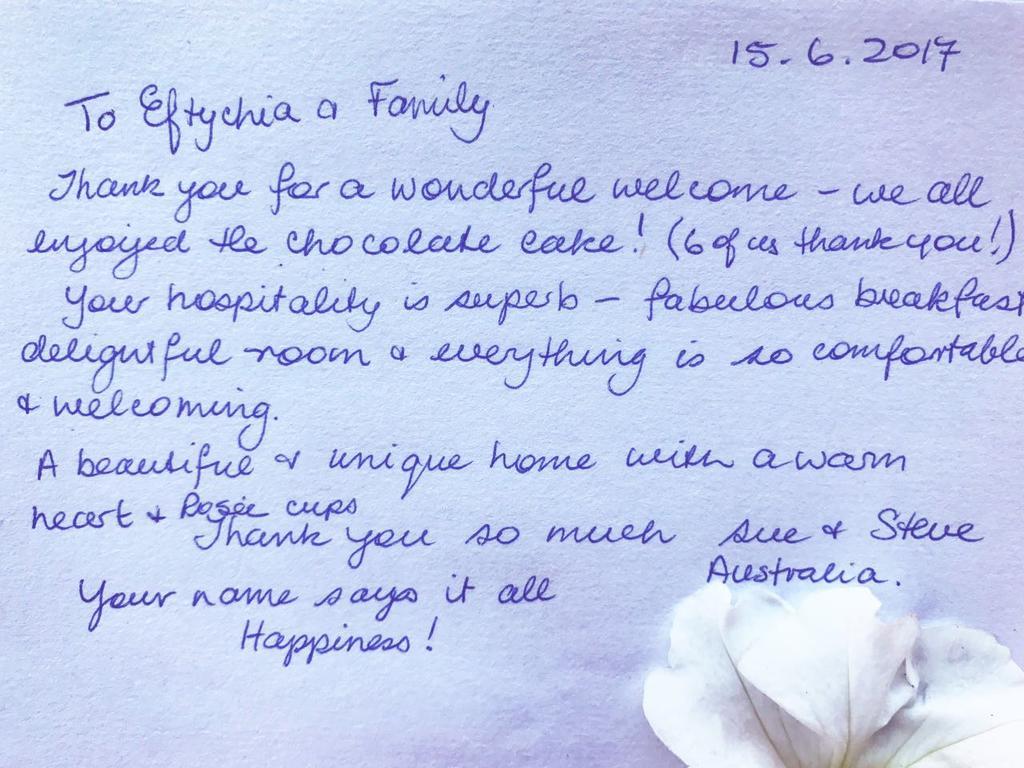 15.6.2017
To Eftychia & Family
Thank you for a wonderful welcome - we all
enjoyed the chocolate cake! (6 of us thank you!)
Your hospitality is superb - fabulous breakfast
delightful room & everything is so comfortable
& welcoming.
A beautiful & unique home with a warm
heart & cups
Thank you so much Sue & Steve
Australia.
Your name says it all
Happiness!